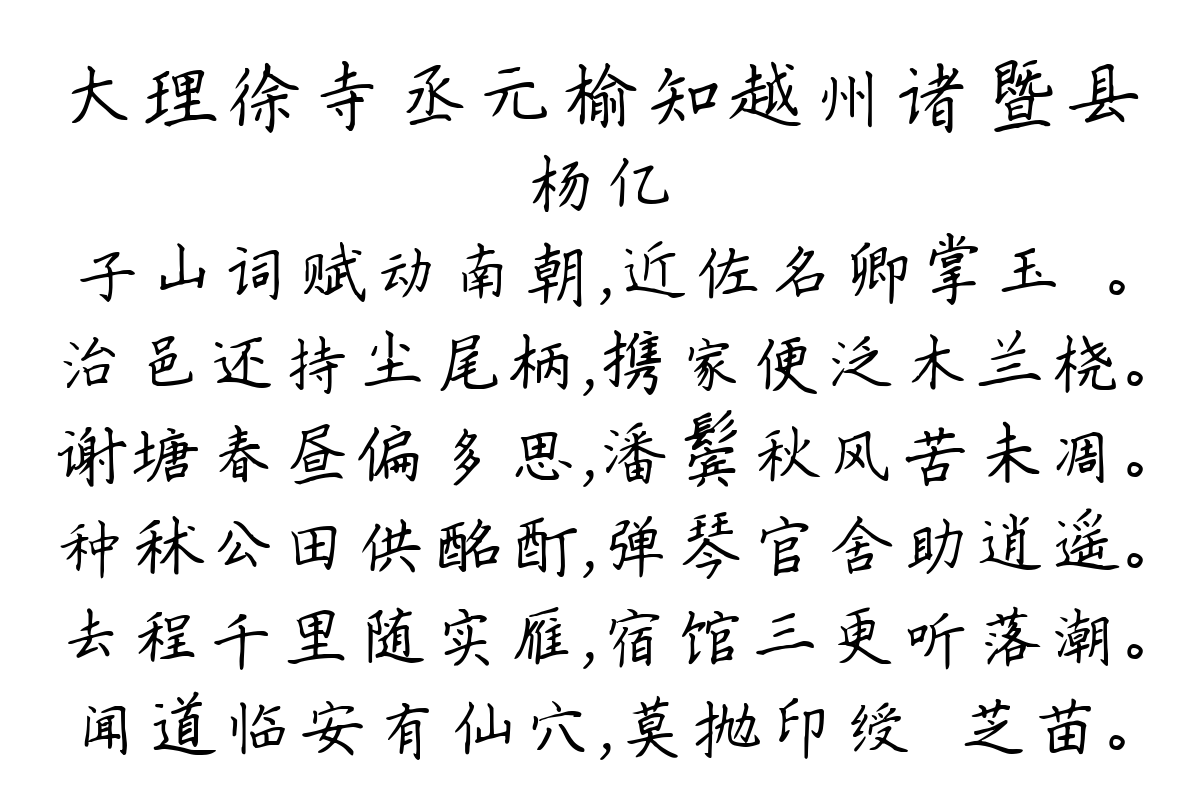 大理徐寺丞元榆知越州诸暨县
杨亿
子山词赋动南朝,近佐名卿掌玉 。
治邑还持尘尾柄,携家便泛木兰桡。
谢塘春昼偏多思,潘鬓秋风苦未凋。
种秫公田供酩酊,弹琴官舍助逍遥。
去程千里随实雁,宿馆三更听落潮。
闻道临安有仙穴,莫抛印绶 芝苗。